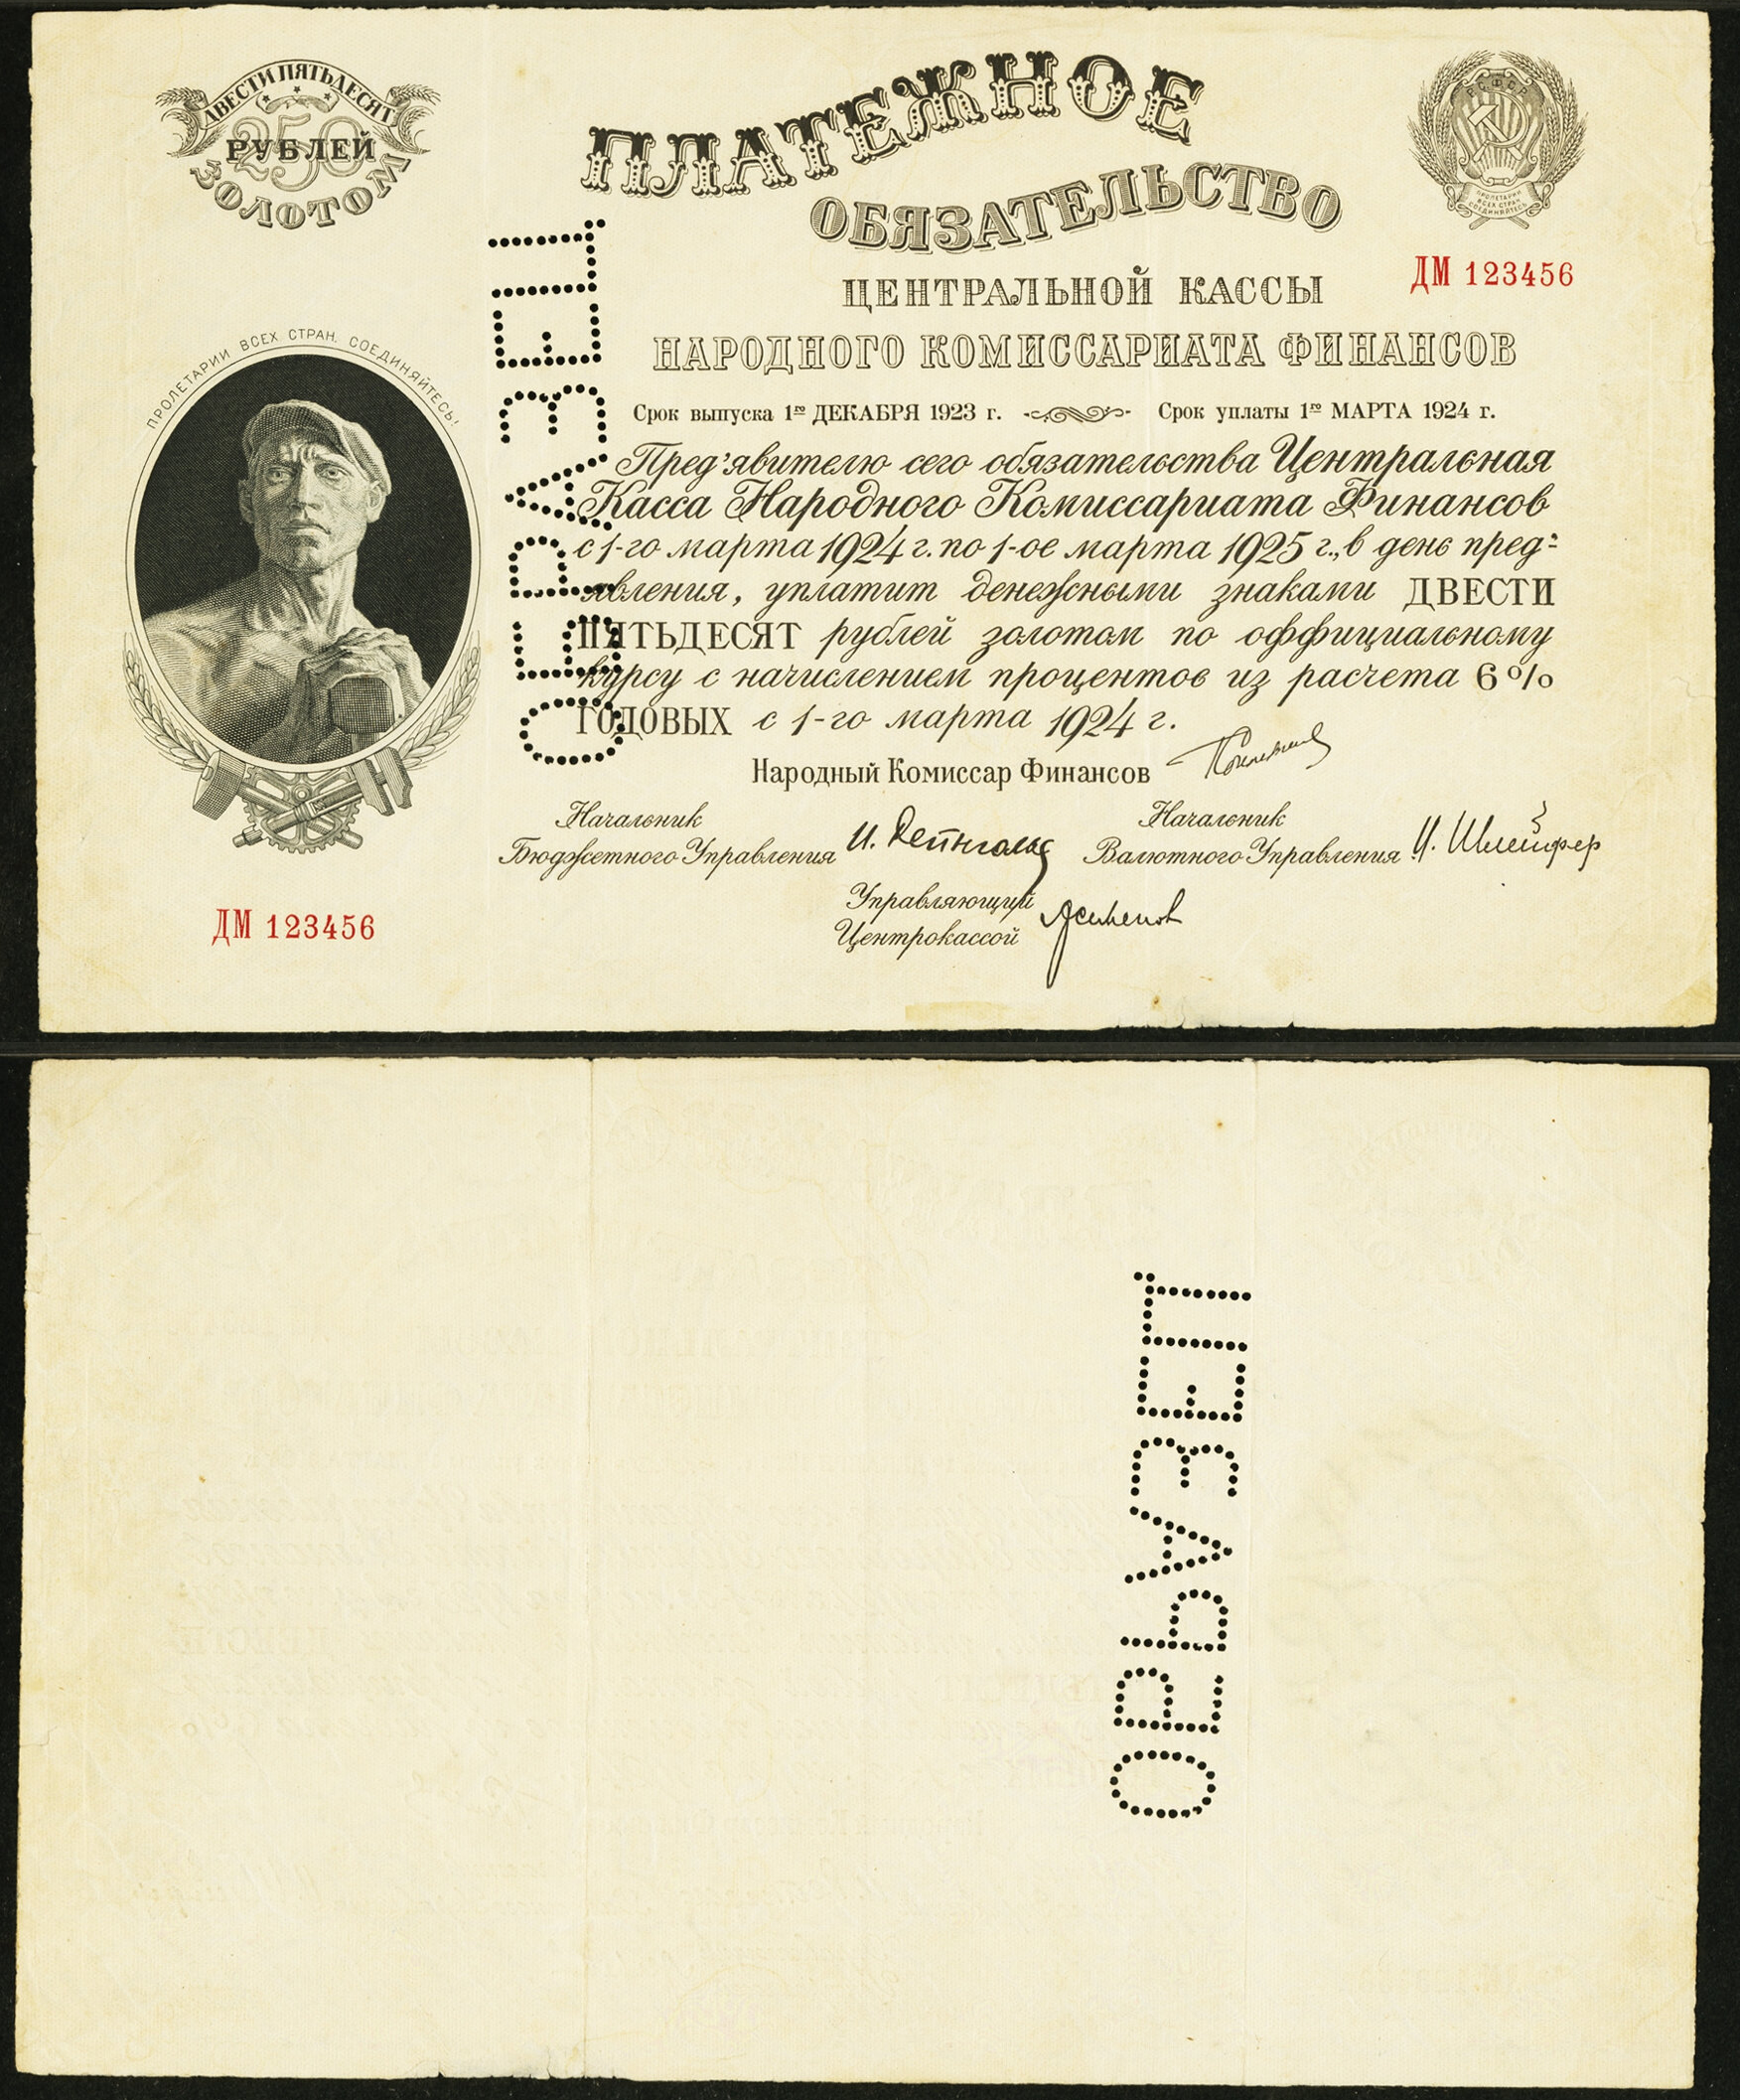 ДВЕСТИ ПЯТЬДЕСЯТ
250
РУБЛЕЙ
ЗОЛОТОМ
ПЛАТЕЖНОЕ
ОБЯЗАТЕЛЬСТВО
ЦЕНТРАЛЬНОЙ КАССЫ
НАРОДНОГО КОМИССАРИАТА ФИНАНСОВ
Р.С.Ф.С.Р.
ПРОЛЕТАРИИ
ВСЕХ СТРАН
СОЕДИНЯЙТЕСЬ
ДМ 123456
Срок выпуска 1го ДЕКАБРЯ 1923 г. Срок уплаты 1го МАРТА 1924 г.
Пред'явителю сего обязательства Центральная
Касса Народного Комиссариата Финансов
с 1-го марта 1924 г. по 1-ое марта 1925 г., в день пред-
явления, уплатит денежными знаками ДВЕСТИ
ПЯТЬДЕСЯТ рублей золотом по оффициальному
курсу с начислением процентов из расчета 6%
ГОДОВЫХ с 1-го марта 1924 г.
Народный Комиссар Финансов
Начальник
Бюджетного Управления И. Рейнгольд
Начальник
Валютного Управления И. Шлейфер
Управляющий
Центрокассой
ПРОЛЕТАРИИ ВСЕХ СТРАН, СОЕДИНЯЙТЕСЬ!
ДМ 123456
ОБРАЗЕЦ
ОБРАЗЕЦ